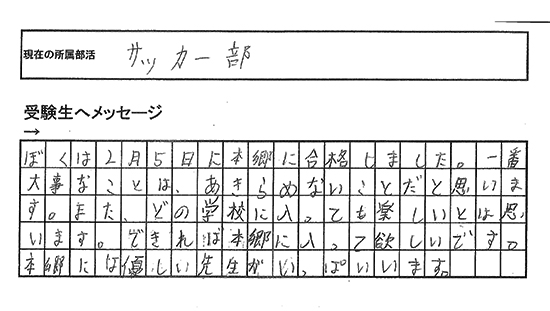 現在の所属部活 サッカー部
受験生へメッセージ
→
ぼくは2月5日に本郷に合格しました。一番
大事なことは、あきらめないことだと思いま
す。また、どの学校に入っても楽しいとは思
います。できれば本郷に入って欲しいです。
本郷には優しい先生がいっぱいいます。